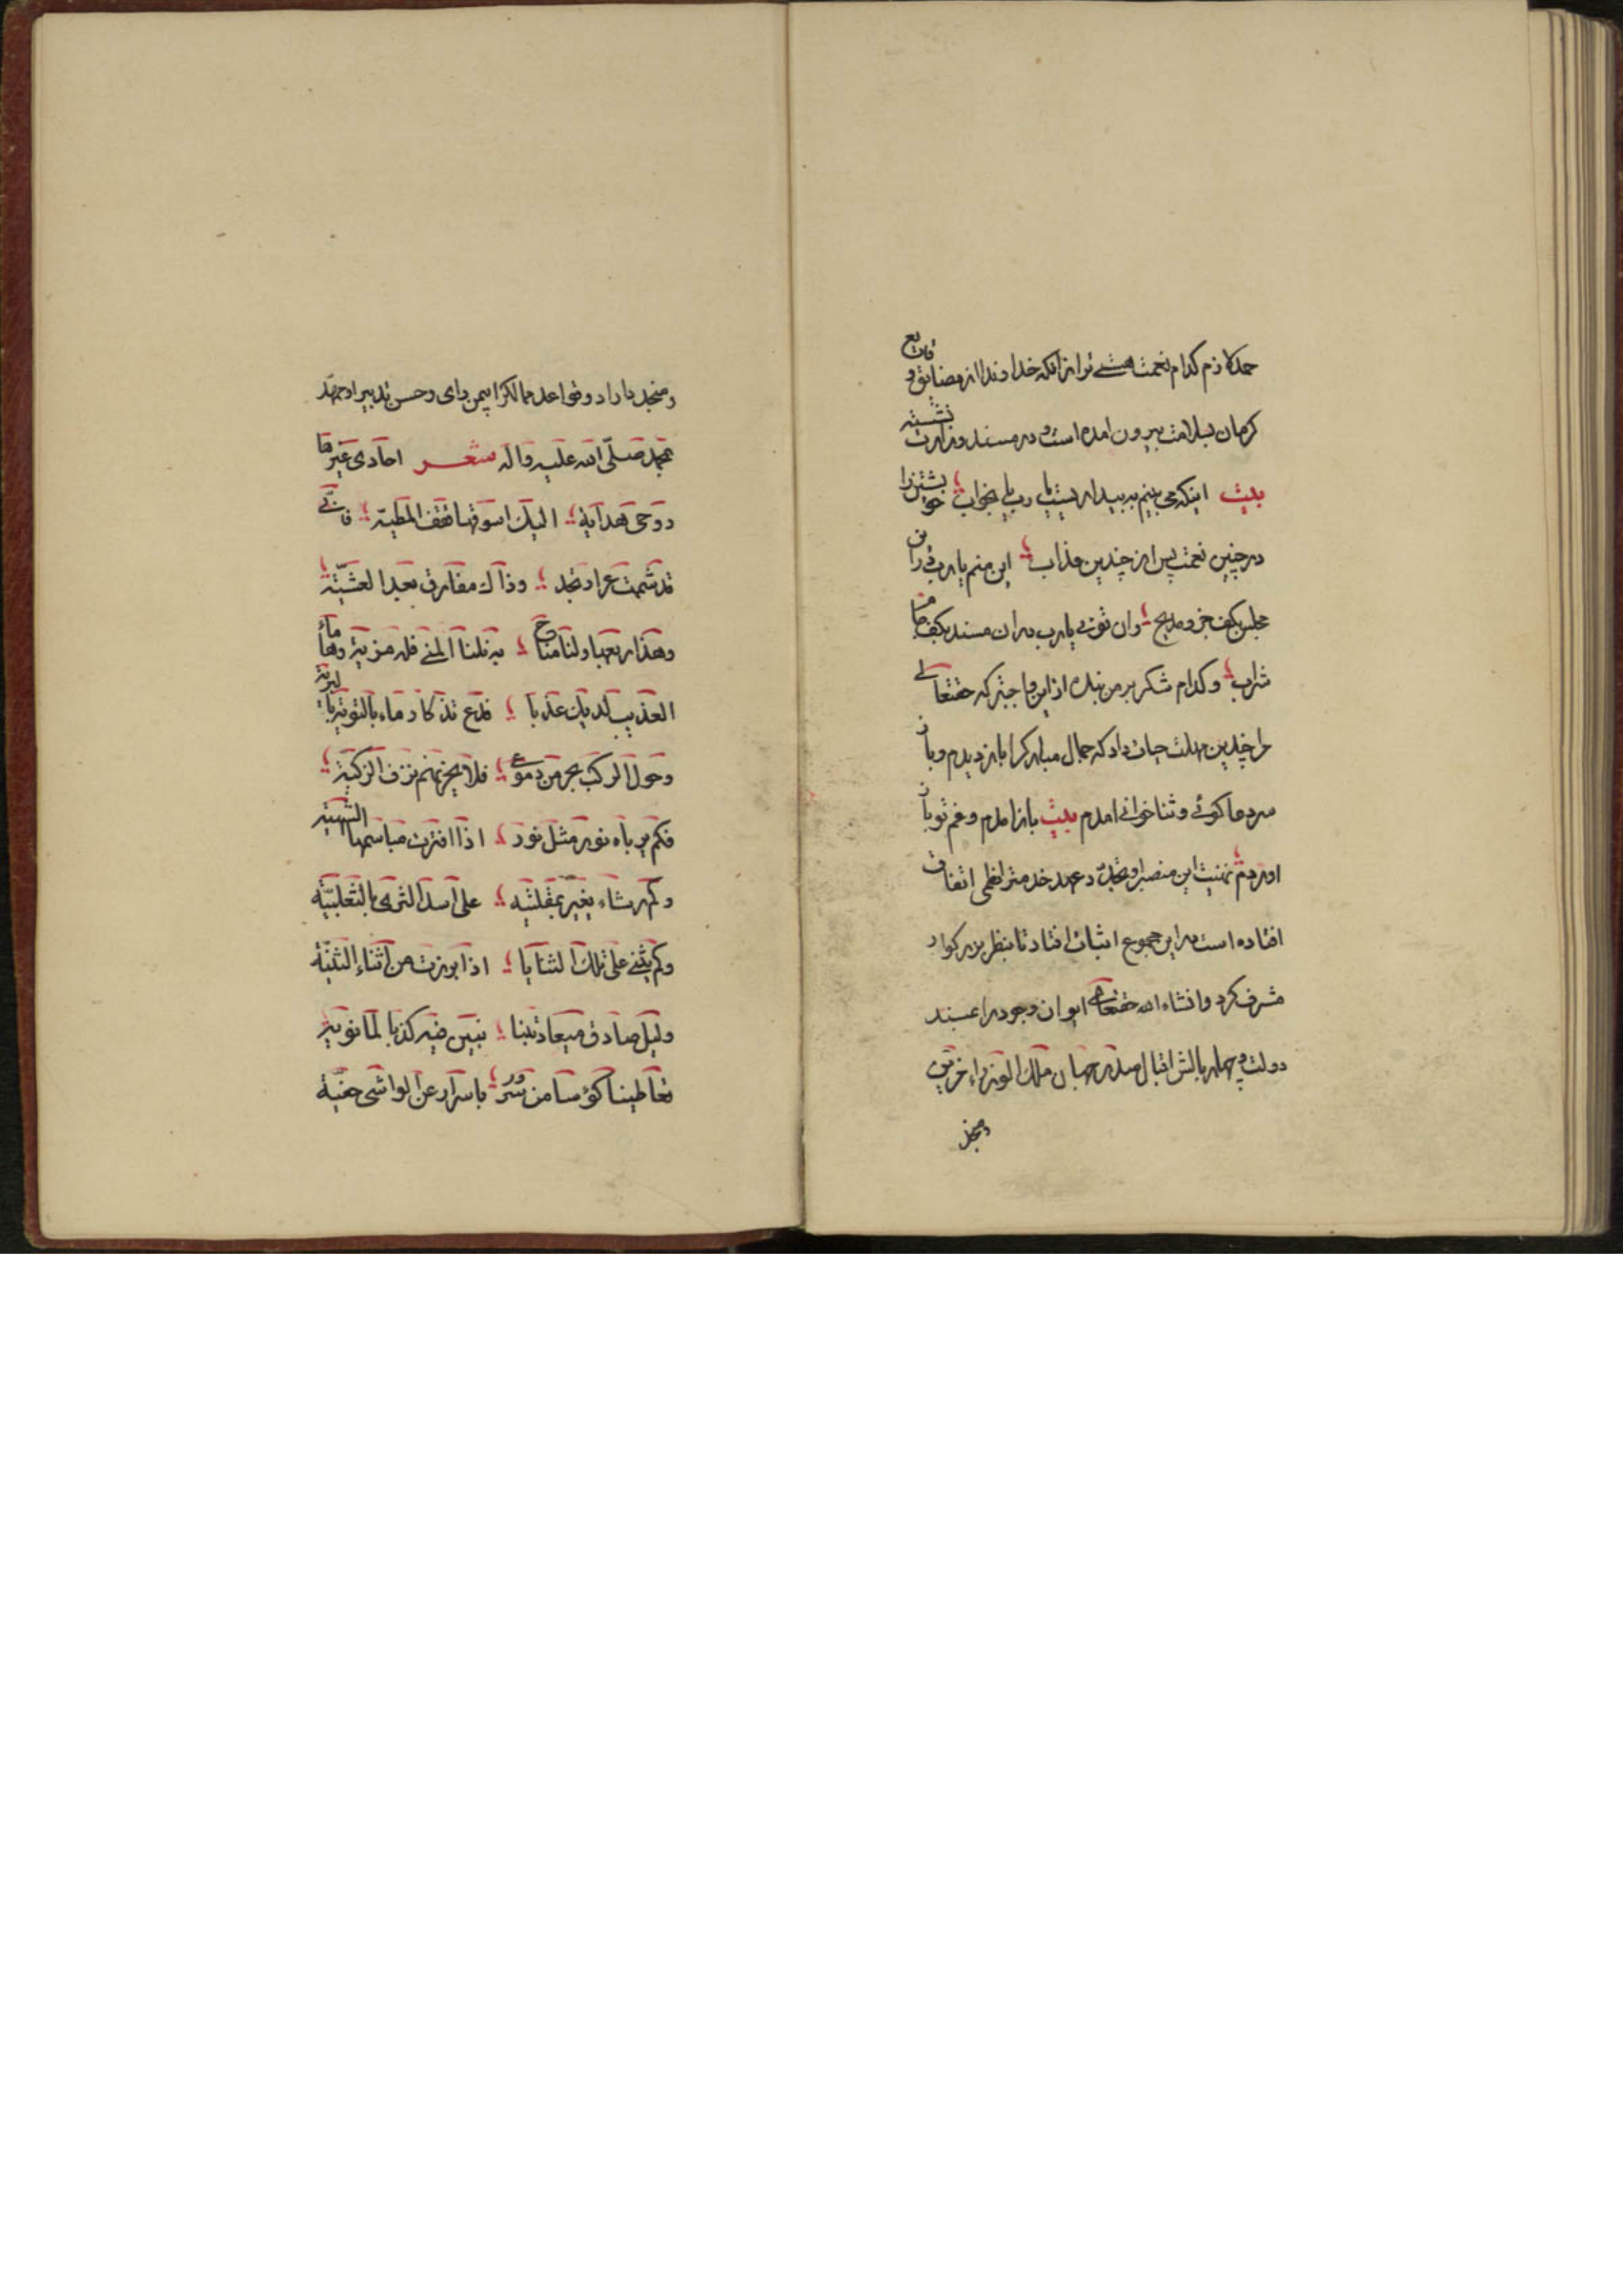 حمد لازم کدام نعمت هنی تر از انکه خداوند را از مضایق و وقایع
کرمان بسلامت بیرون امده است و در مسند وزارت نشسته
بیت اینکه می بینم به بیداریست یا رب یا بخواب خویشتن را
در چنین نعمت پس از چندین عذاب این منم یا رب در این
مجلس بکف جزو مدیح وان تونی یا رب دران مسند بکف جام
شراب و کدام شکر بر من بنده از این واجبتر که حقتعالی
مرا چندین مهلت حیات داد که جمال مبارکرا باز دیدم و باز
سر دعا کوئی و ثنا خوانی امدم بیت باز امدم و غم تو باز
اوردم تهنیت این منصب را و تجدید عهد خدمت را نظمی اتفاق
افتاده است در این مجموع اثبات افتاد تا بنظر بزرکوار
مشرف کردد انشاء الله حقتعالی ایوان وجود را بمسند
دولت و چهار بالش اقبال صدر جهان ملک الوزراء مزین
و منجد
و منجد داراد و قواعد ممالکرا بیمن رای و حسن تدبیر او ممهد
بمحمد صلّی الله علیه واله شعر احادی عیرها
روحی هدایة الیک اسوقها فقف المطیّة فانی
قد شممت عرار نجد وذاک مفارقی بعد العشیّة
وهذا ربعها ولنا مناخ به نلنا المنی فله مزیة وهذا ماء
العذیب لدیک عذبا فدع تذکار ماء بالثویة البریة
وحول الرکب بحر من دموعی فلا یحزنهم نزف الرکیة
فکم برباه نور مثل نور اذا افترت مباسمها الشهیة
وکم رشاء یغیر بمقلتیه علی اسد الثری بالثعلبیّة
وکم یثنی علی تلک الثنایا اذا برزت من اثناء الثنیّة
ولیل صادق میعاد لبنا تبین فیه کذبا لمانویة
تعاطینا کؤسا من سرور باسرار عن الواشی خفیّة